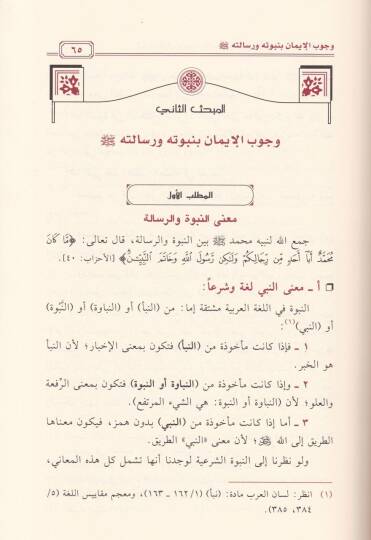 وجوب الإيمان بنبوته ورسالته ﷺ
٦٥
المبحث الثاني
وجوب الإيمان بنبوته ورسالته ﷺ
المطلب الأول
معنى النبوة والرسالة
جمع الله لنبيه محمد ﷺ بين النبوة والرسالة، قال تعالى: ﴿مَّا كَانَ
مُحَمَّدٌ أَبَآ أَحَدٍ مِّن رِّجَالِكُمْ وَلَٰكِن رَّسُولَ اللَّهِ وَخَاتَمَ النَّبِيِّـۧنَ﴾ [الأحزاب: ٤٠].
أ ـ معنى النبي لغة وشرعاً:
النبوة في اللغة العربية مشتقة إما: من (النبأ) أو (النباوة) أو (النَّبْوة)
أو (النبي)(١):
١ ـ فإذا كانت مأخوذة من (النبأ) فتكون بمعنى الإخبار؛ لأن النبأ
هو الخبر.
٢ ـ وإذا كانت مأخوذة من (النباوة أو النبوة) فتكون بمعنى الرِّفعة
والعلو؛ لأن (النباوة أو النبوة: هي الشيء المرتفع).
٣ ـ أما إذا كانت مأخوذة من (النبي) بدون همز، فيكون معناها
الطريق إلى الله ﷻ؛ لأن معنى «النبي» الطريق.
ولو نظرنا إلى النبوة الشرعية لوجدنا أنها تشمل كل هذه المعاني،
(١) انظر: لسان العرب مادة: (نبأ) (١/ ١٦٢ ـ ١٦٣)، ومعجم مقاييس اللغة (٥/
٣٨٤، ٣٨٥).